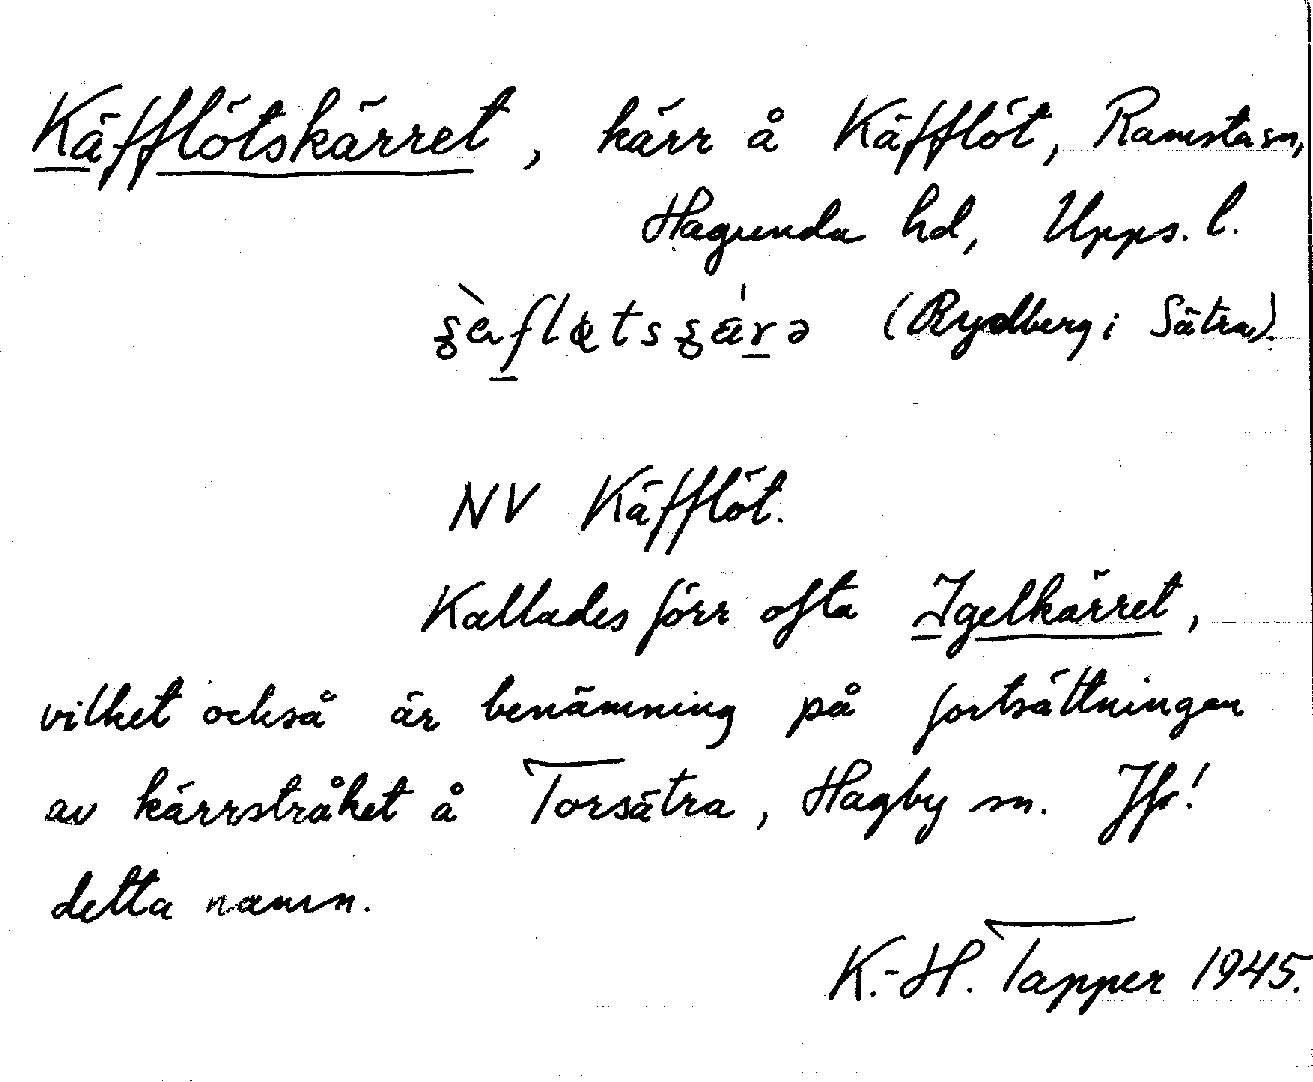 Käfflötskärret, kärr å Käfflöt, Ramsta sn,
Hagunda hd, Upps. l.
(Rydberg i Sätra).
NV Käfflöt.
Kallades förr ofta Igelkärret,
vilket också är benämning på fortsättningen
av kärrstråket å Torsätra, Hagby sn. Jfr!
detta namn.
K.-H. Tapper 1945.